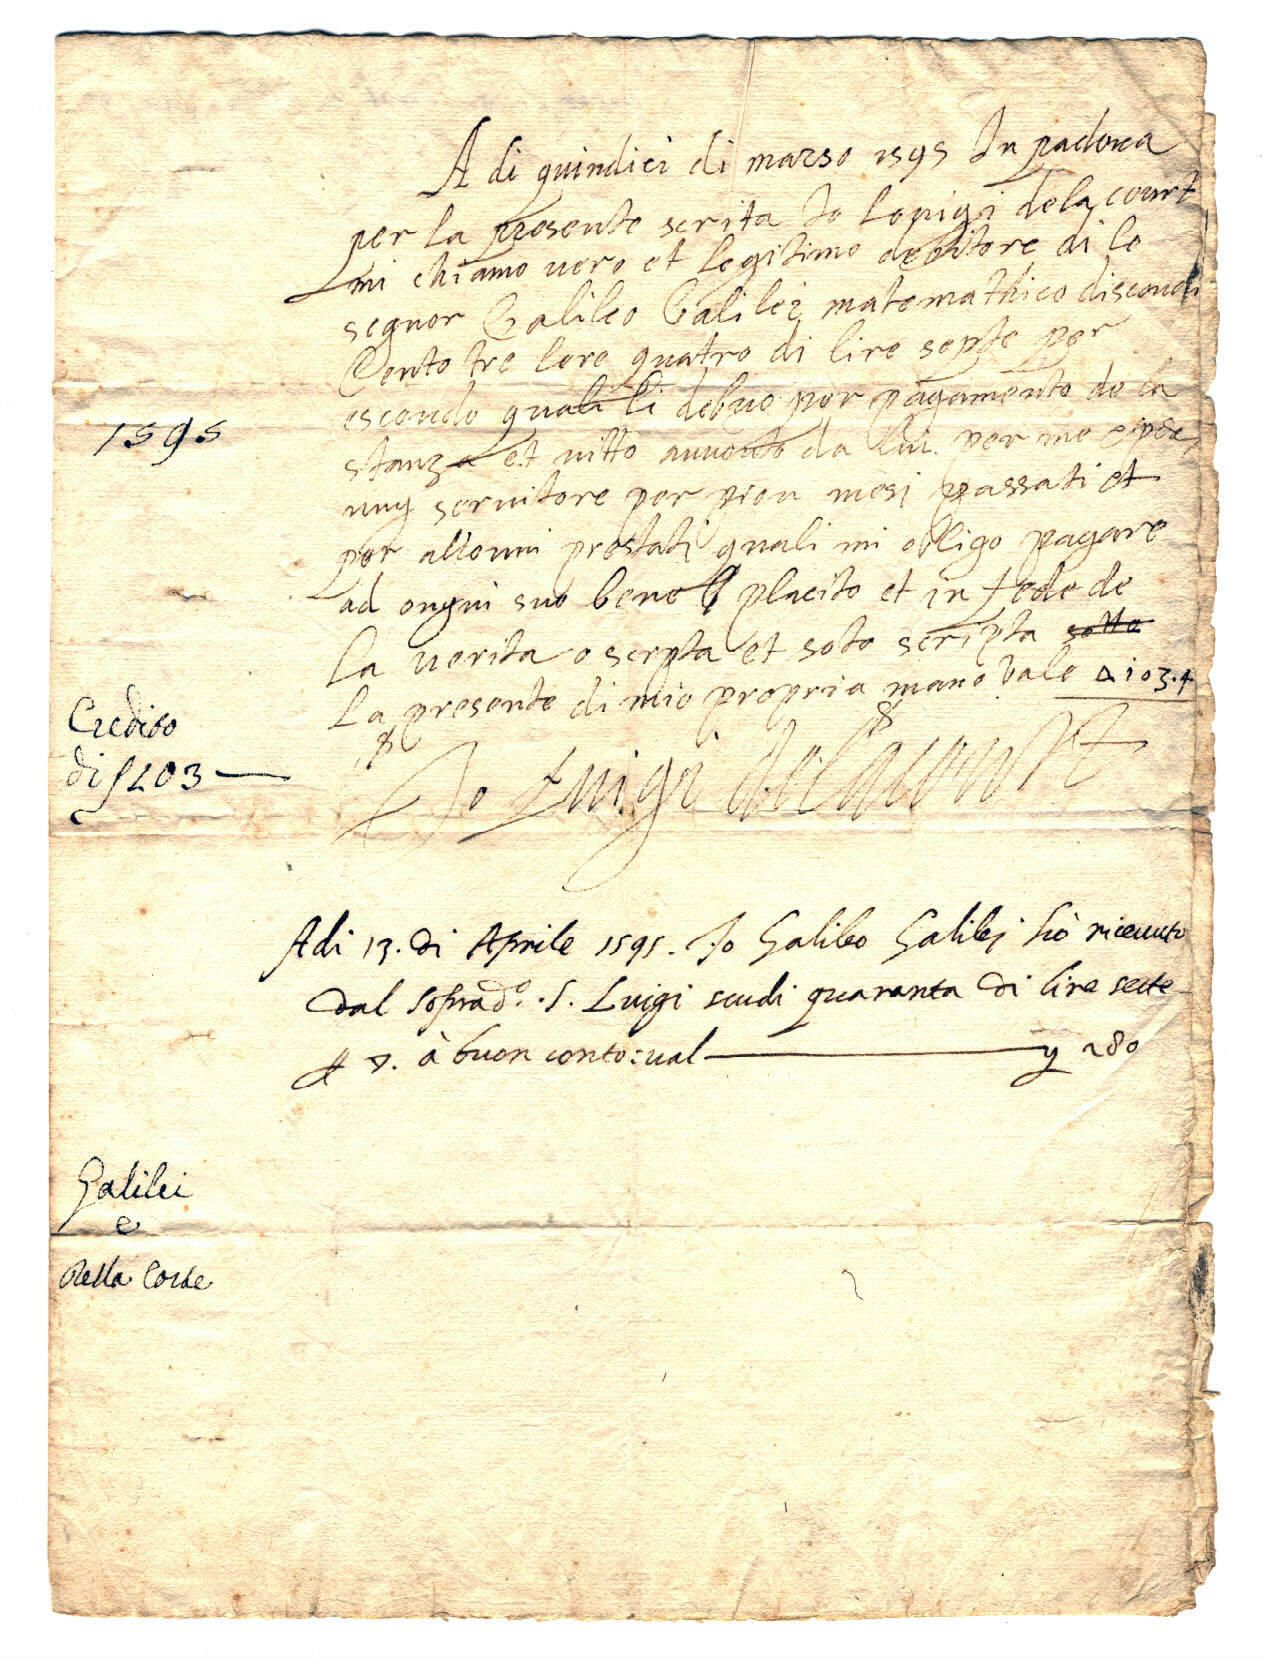 A di quindici di marso 1595 In padova
per la presente scrita Io Lovigi dela court
mi chiamo vero et legitimo debitore di le
segnor Galileo Galilei matemathico di scoudi
Cento tre lere quatro di lire septe per
escoudo quali li debuo per pagamento de la
stanza et vitto auuto da lui per me e per
ung servitore per pieu mesi passati et
per alcouni prestati quali mi obligo pagare
ad ongni suo bene placito et in fede de
la verita o scrpta et soto scripta sotto
La presente di mio propria mano Vale ∆ 103.4
Io Luigi de la court
1595
Credito
di ∫ 103
Adi 13. di Aprile 1595. Io Galileo Galilej hò riceuuto
dal soprad.º S. Luigi scudi quaranta di lire sette
à buon conto: val 280
Galilei
e
Della Corte